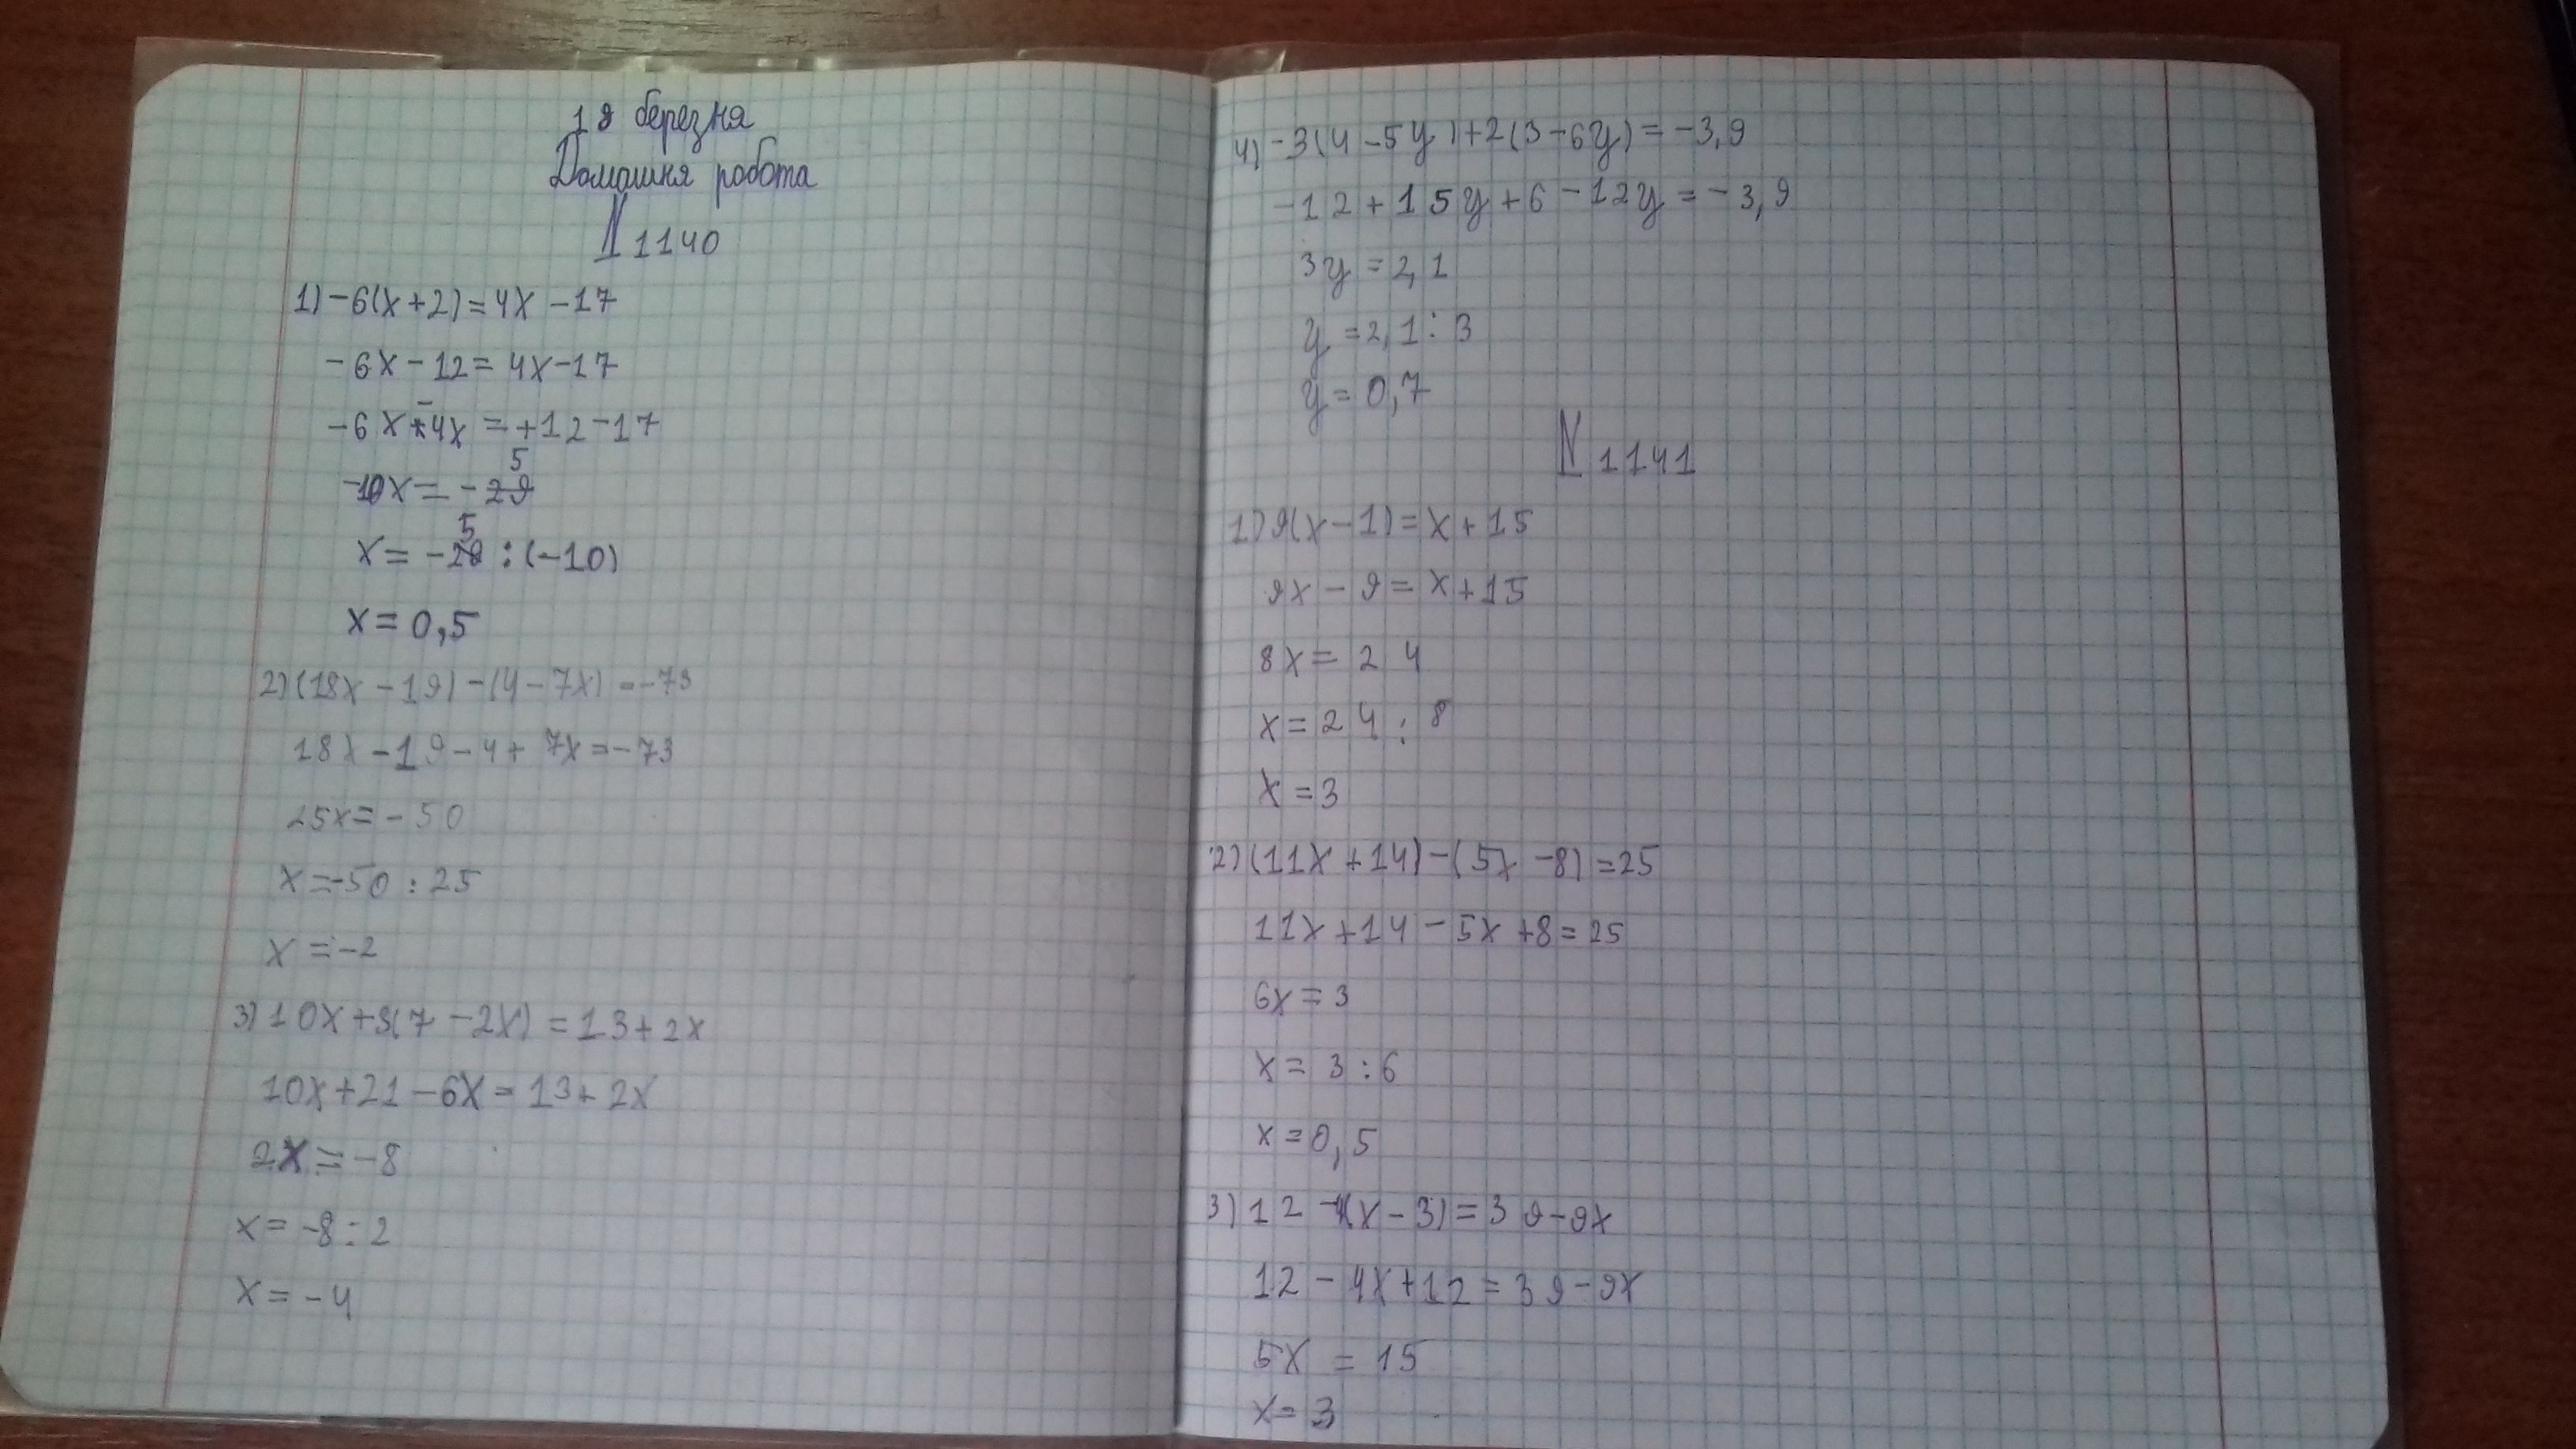 18 березня
Домашня робота
N 1140
1) -6(x+2)=4x-17
-6x-12=4x-17
-6x-4x=+12-17
-10x=-5
x=-5:(-10)
x=0,5
2) (18x-19)-(4-7x)=-73
18x-19-4+7x=-73
25x=-50
x=-50:25
x=-2
3) 10x+3(7-2x)=13+2x
10x+21-6x=13+2x
2x=-8
x=-8:2
x=-4
4) -3(4-5y)+2(3-6y)=-3,9
-12+15y+6-12y=-3,9
3y=2,1
y=2,1:3
y=0,7
N 1141
1) 9(x-1)=x+15
9x-9=x+15
8x=24
x=24:8
x=3
2) (11x+14)-(5x-8)=25
11x+14-5x+8=25
6x=3
x=3:6
x=0,5
3) 12-4(x-3)=39-9x
12-4x+12=39-9x
5x=15
x=3